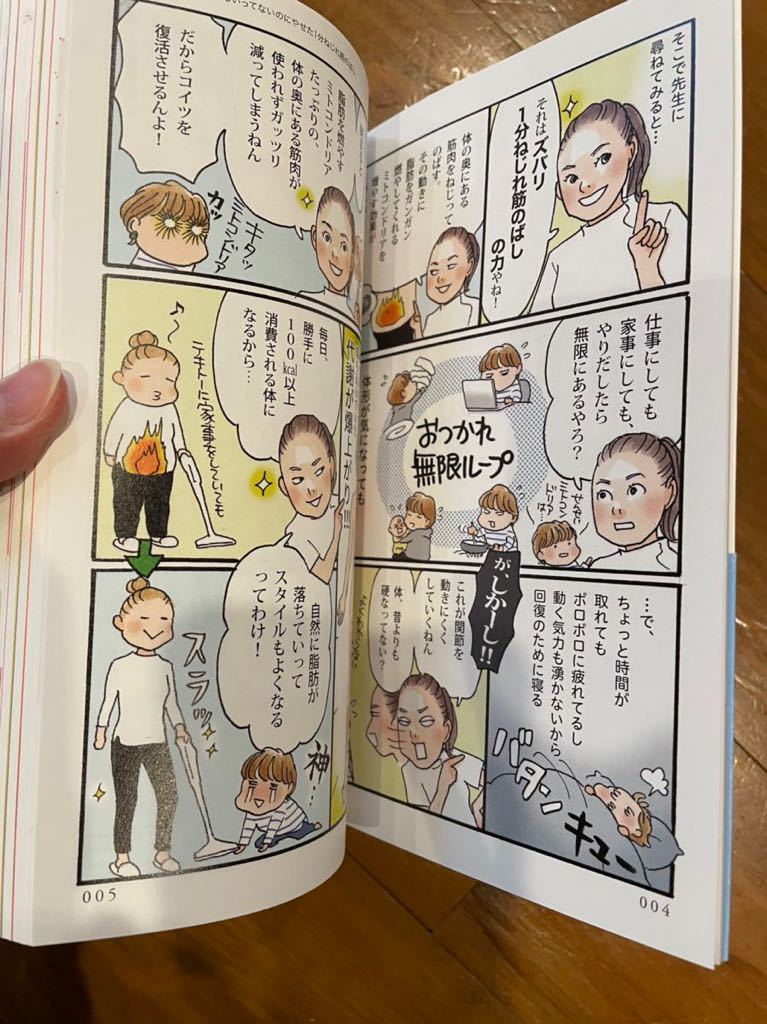 そこで先生に
尋ねてみると…
それはズバリ
1分ねじれ筋のばし
の力やね!
体の奥にある
筋肉をねじって
のばす。
その動きに
脂肪をガンガン
燃やしてくれる
ミトコンドリアを
燃やす効果が
仕事にしても
家事にしても、
やりだしたら
無限にあるやろ?
せなに
ミトコン
ドリアは…
おつかれ
無限ループ
体形が気になっても
…で、
ちょっと時間が
取れても
ボロボロに疲れてるし
動く気力も湧かないから
回復のために寝る
バタン
キュー
が、しかーし!!
これが関節を
動きにくく
していくねん
体、昔よりも
硬なってない?
004
いってないのにやせた1分ねじれ筋のばし
脂肪を燃やす
ミトコンドリア
たっぷりの、
体の奥にある筋肉が
使われずガッツリ
減ってしまうねん
だからコイツを
復活させるんよ!
キタッ
ミトコンドリア
カッ
代謝が爆上がり!!!
毎日、
勝手に
100kcal以上
消費される体に
なるから…
♪〜
テキトーに家事をしていても
自然に脂肪が
落ちていって
スタイルもよくなる
ってわけ!
スラッ
神…
005